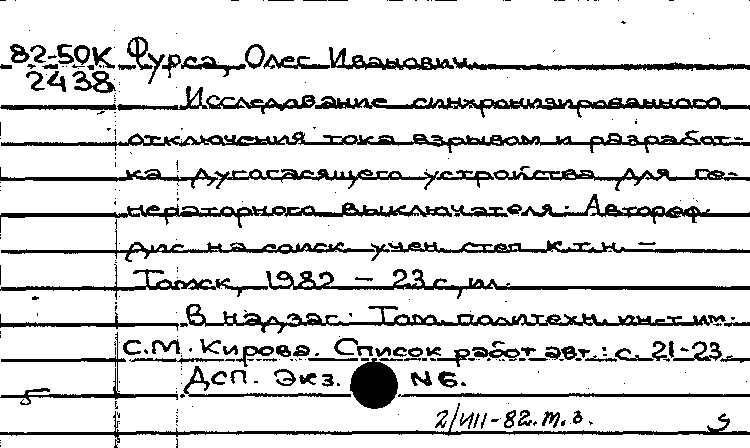 82-50К Фурса, Олес Иванович.
2438
Исследование синхронизированного
отключения тока взрывом и разработ-
ка дугогасящего устройства для ге-
нераторного выключателя: Автореф.
дис на соиск. учен. степ к.т.н. —
Томск, 1982 — 23 с., ил.
В надзаг.: Том. политехн. ин-т им.
С.М. Кирова. Список работ авт.: с. 21-23.
ДСП. Экз. N 6.
5
2/VIII-82. т.з.